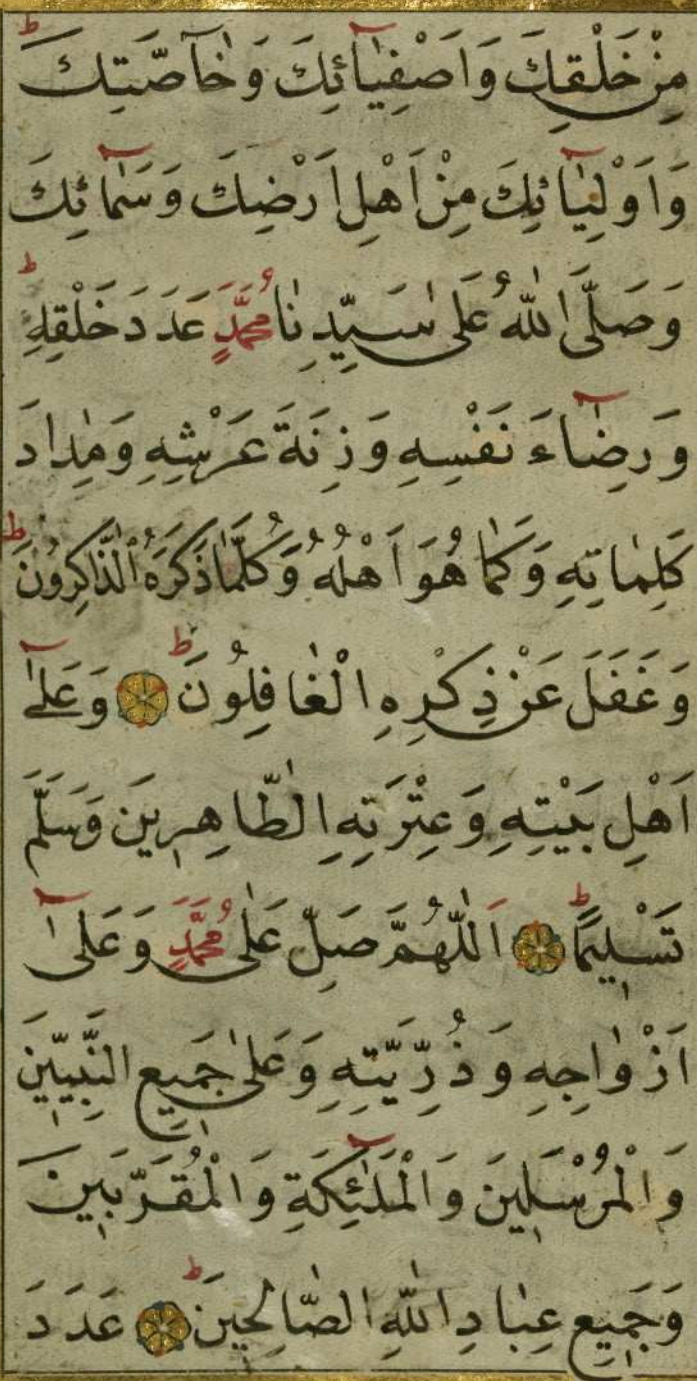 مِنْ خَلْقِكَ وَاَصْفِيَآئِكَ وَخَآصَّتِكَ ط
وَاَوْلِيَآئِكَ مِنْ اَهْلِ اَرْضِكَ وَسَمَآئِكَ
وَصَلَّى اللّٰهُ عَلٰى سَيِّدِنَا مُحَمَّدٍ عَدَدَ خَلْقِهِ ط
وَرِضَآءَ نَفْسِهِ وَزِنَةَ عَرْشِهِ وَمِدَادَ
كَلِمَاتِهِ وَكَمَا هُوَ اَهْلُهُ وَكُلَّمَا ذَكَرَهُ الذَّاكِرُونَ ط
وَغَفَلَ عَنْ ذِكْرِهِ الْغَافِلُونَ ط وَعَلٰٓى
اَهْلِ بَيْتِهِ وَعِتْرَتِهِ الطَّاهِرِينَ وَسَلَّمَ
تَسْلِيمًا ط اَللّٰهُمَّ صَلِّ عَلٰى مُحَمَّدٍ وَعَلٰٓى
اَزْوَاجِهِ وَذُرِّيَّتِهِ وَعَلٰى جَمِيعِ النَّبِيّٖنَ
وَالْمُرْسَلِينَ وَالْمَلٰٓئِكَةِ وَالْمُقَرَّبِينَ
وَجَمِيعِ عِبَادِ اللّٰهِ الصَّالِحِينَ ط عَدَدَ